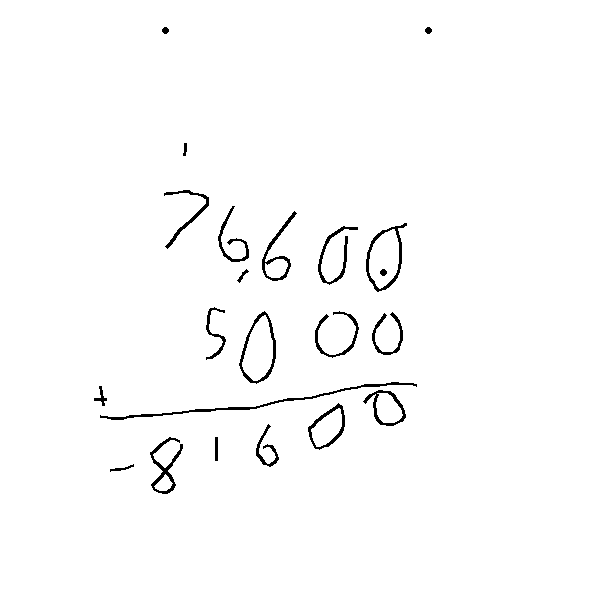 1
76,600
5000
+
-81600